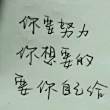 你要努力
你想要的
要你自己给